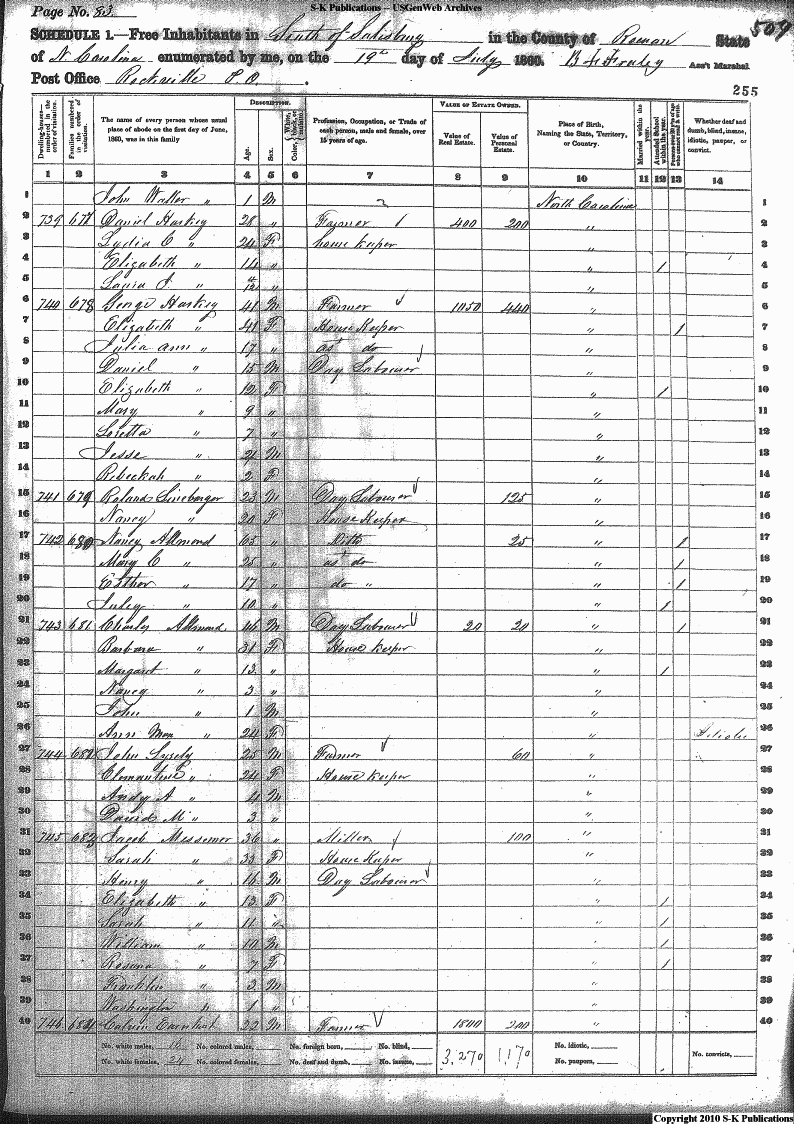 S-K Publications – USGenWeb Archives
Page No. 83
509
SCHEDULE 1.—Free Inhabitants in South of Salisbury in the County of Rowan State
of N Carolina enumerated by me, on the 19th day of July 1860. Ass't Marshal.
Post Office Rockville P.O.
255
Dwelling-houses—numbered in the order of visitation.
Families numbered in the order of visitation.
The name of every person whose usual place of abode on the first day of June, 1860, was in this family
Description.
Age.
Sex.
Profession, Occupation, or Trade of each person, male and female, over 15 years of age.
Value of Estate Owned.
Value of Real Estate.
Value of Personal Estate.
Place of Birth, Naming the State, Territory, or Country.
Married within the year.
Attended School within the year.
Whether deaf and dumb, blind, insane, idiotic, pauper, or convict.
1 2 3 4 5 6 7 8 9 10 11 12 13 14
1 John Walter " 1 M North Carolina 1
2 739 677 Daniel Harkey 28 " Farmer 400 200 " 2
3 Lydia C " 24 F house keeper " 3
4 Elizabeth " 14 " " 1 4
5 Laura J. " 4/12 " " 5
6 740 678 George Harkey 41 M Farmer 1050 440 " 6
7 Elizabeth " 41 F House Keeper " 1 7
8 Julia Ann " 17 " as do " 8
9 Daniel " 15 M Day Labourer " 9
10 Elizabeth " 12 F " 1 10
11 Mary " 9 " " 11
12 Loretta " 7 " " 12
13 Jesse " 4 M " 13
14 Rebeckah " 2 F " 14
15 741 679 Roland Lineberger 23 M Day Labourer 125 " 15
16 Nancy " 20 F House Keeper " 16
17 742 680 Nancy Allmond 65 " Ditto 25 " 1 17
18 Mary C " 25 " as do " 1 18
19 Esther " 17 " do " " 1 19
20 Juley " 10 " " 1 20
21 743 681 Charles Allmond 46 M Day Labourer 20 20 " 1 21
22 Barbara " 31 F House Keeper " 22
23 Margaret " 13 " " 1 23
24 Nancy " 3 " " 24
25 John " 1 M " 25
26 Ann " 24 F " Idiotic 26
27 744 682 John Lysely 25 M Farmer 60 " 27
28 Clementine " 24 F House Keeper " 28
29 Andy A " 4 M " 29
30 David M " 3 " " 30
31 745 683 Jacob Messemer 36 " Miller 100 " 31
32 Sarah " 33 F House Keeper " 32
33 Henry " 16 M Day Labourer " 33
34 Elizabeth " 13 F " 1 34
35 Sarah " 11 " " 1 35
36 William " 10 M " 1 36
37 Rosena " 7 F " 1 37
38 Franklin " 3 M " 38
39 Washington " 1 " " 39
40 746 684 Calvin Earnhart 22 M Farmer 1800 200 " 40
No. white males, No. colored males, No. foreign born, No. blind, No. idiotic,
No. white females, 24 No. colored females, No. deaf and dumb, No. insane, 3,270 1170 No. paupers, No. convicts,
Copyright 2010 S-K Publications